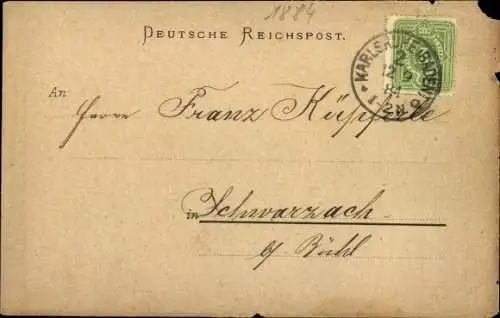 1884
DEUTSCHE REICHSPOST.
KARLSRUHE (BADEN)
12 9
84
1-2 N
An
Herrn Franz Küpferle
in Schwarzach
b/ Bühl